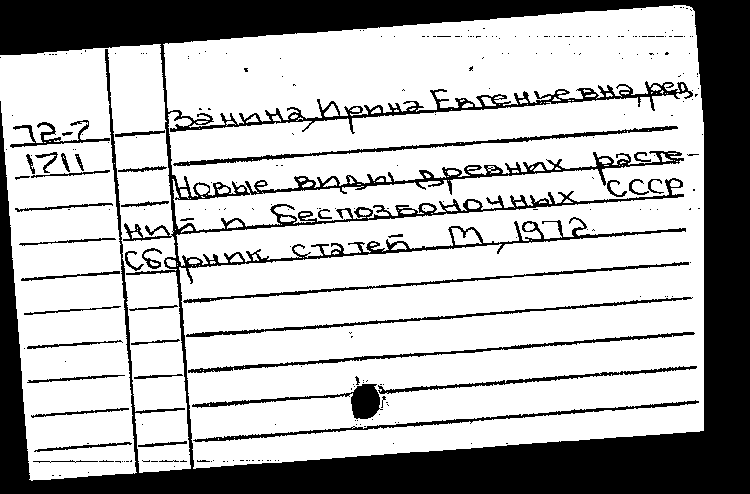 Занина, Ирина Евгеньевна, ред.
72-7
1711
Новые виды древних расте
ний и беспозвоночных СССР
Сборник статей. М, 1972.